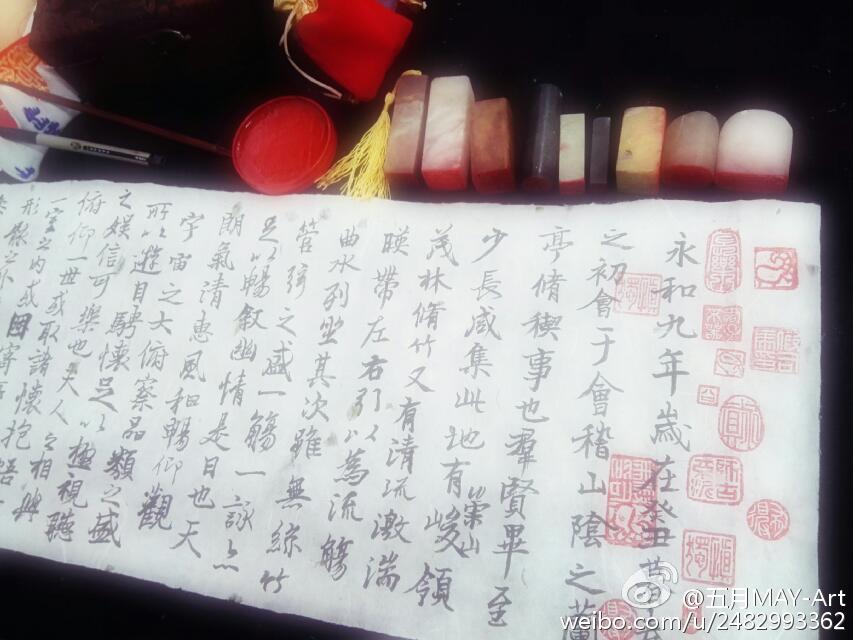 永和九年歲在癸丑暮
之初會于會稽山陰之蘭
亭脩稧事也羣賢畢至
少長咸集此地有崇山峻領
茂林脩竹又有清流激湍
暎帶左右引以為流觴
曲水列坐其次雖無絲竹
管弦之盛一觴一詠亦
足以暢敘幽情是日也天
朗氣清惠風和暢仰觀
宇宙之大俯察品類之盛
所以遊目騁懷足以極視聽
之娛信可樂也夫人之相與
俯仰一世或取諸懷抱悟
一室之內或因寄所
形骸之外
@五月MAY-Art
weibo.com/u/2482993362